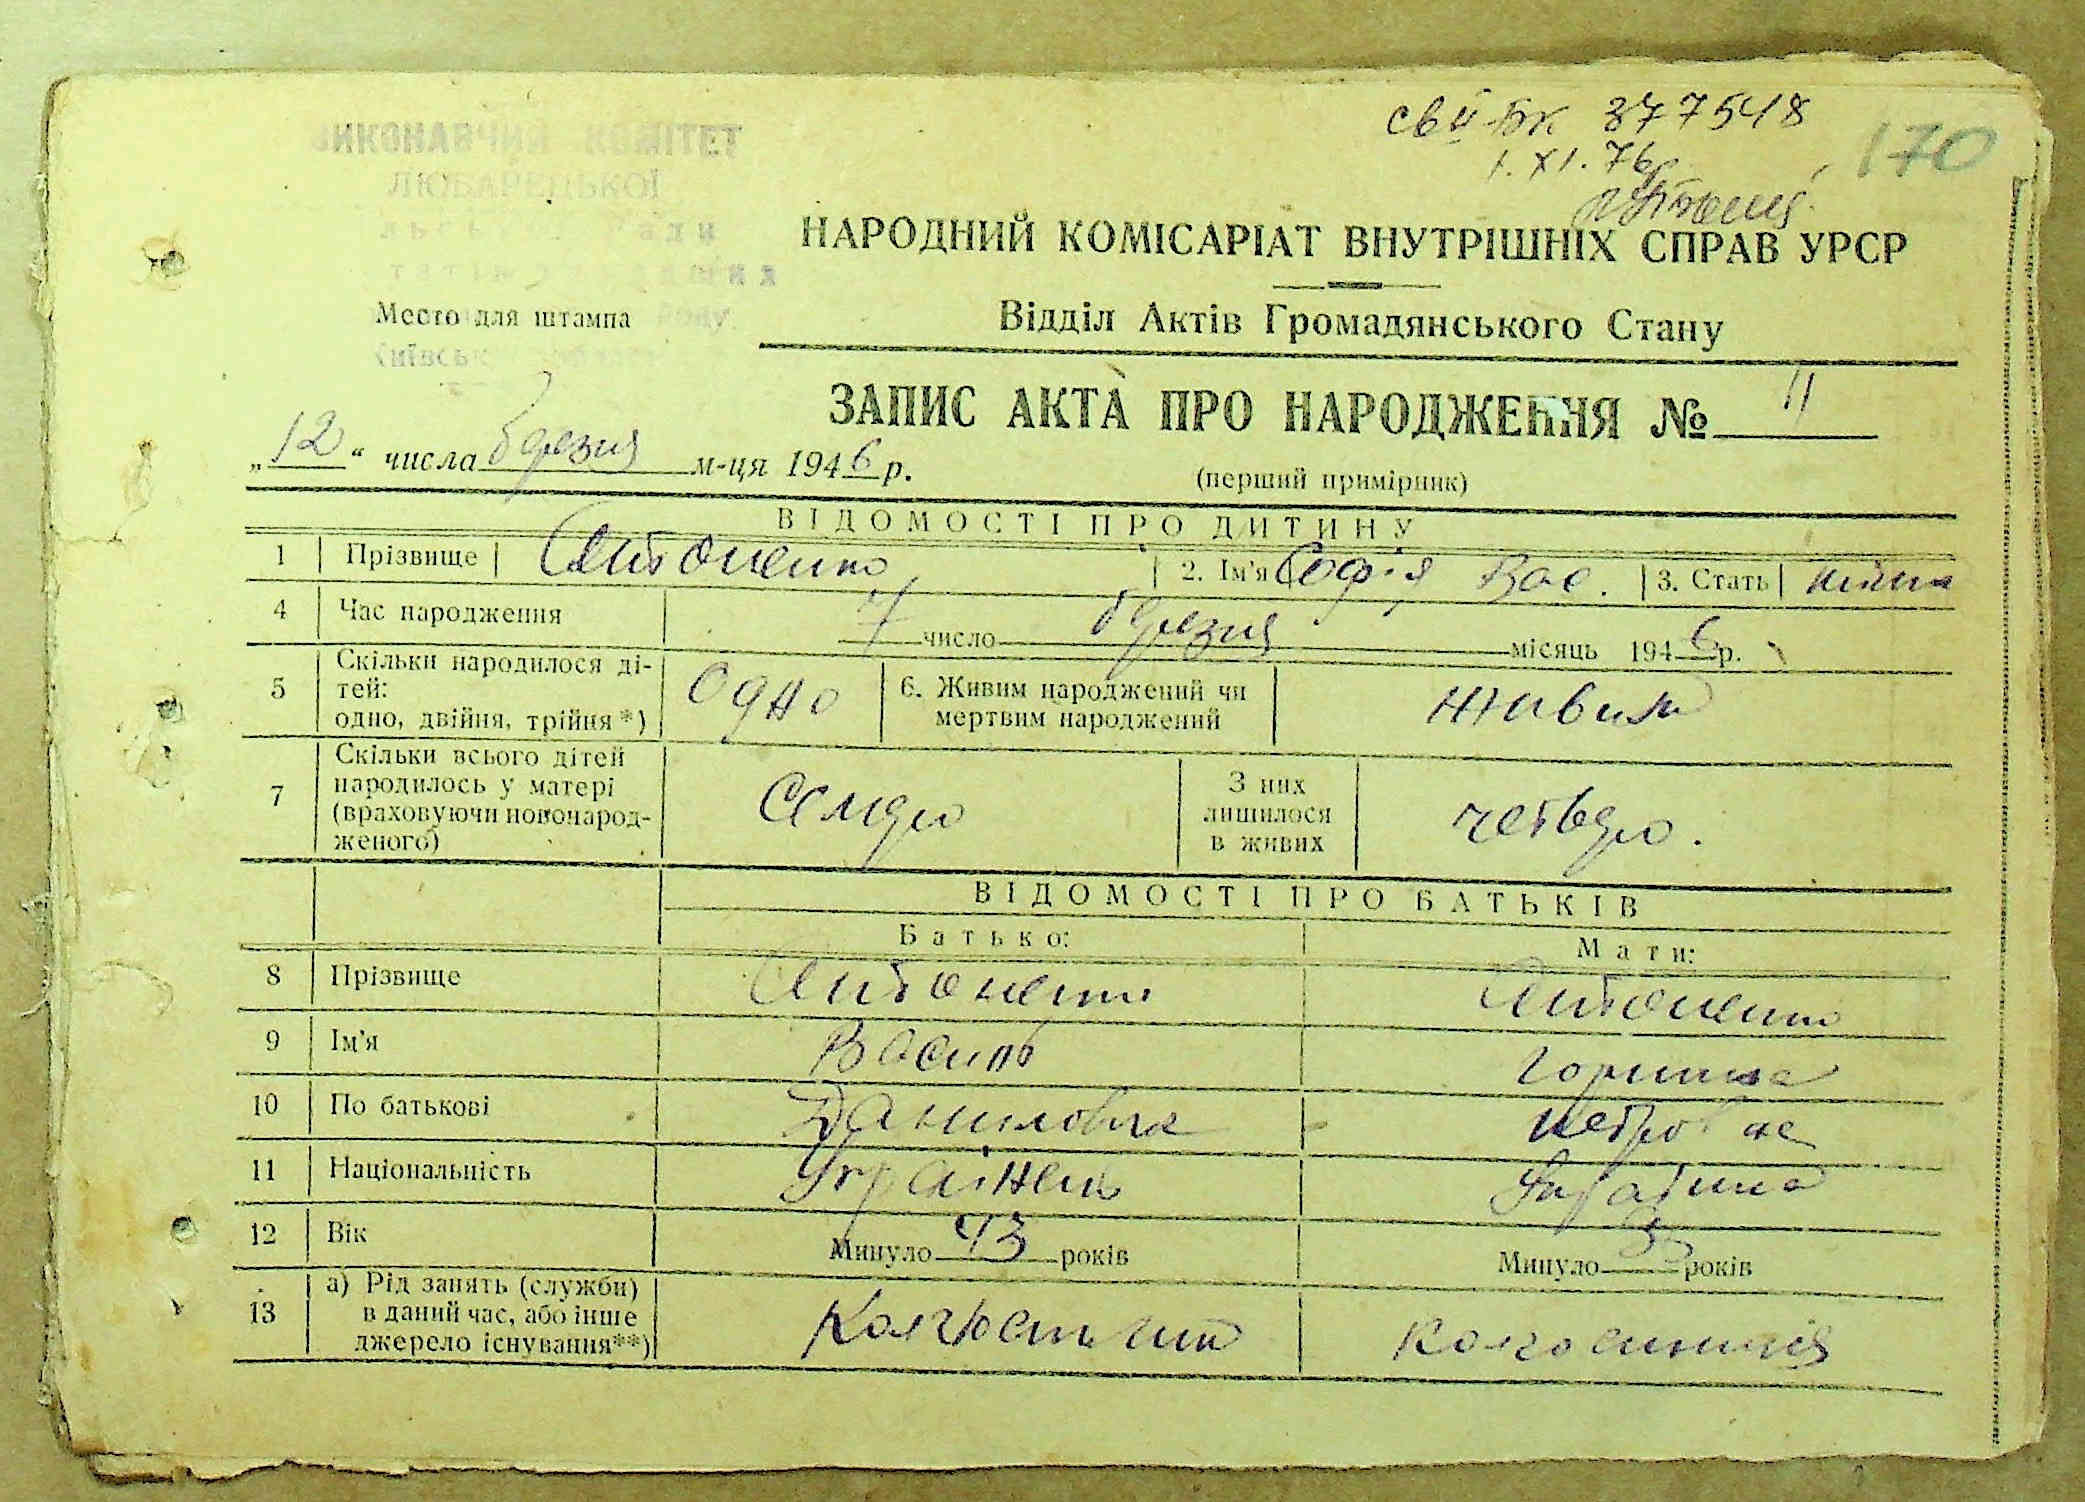 св II-БК 377548
1.XI.76р.
170
ВИКОНАВЧИЙ КОМІТЕТ
ЛЮБАРЕЦЬКОЇ
НАРОДНИЙ КОМІСАРІАТ ВНУТРІШНІХ СПРАВ УРСР
Место для штампа
Відділ Актів Громадянського Стану
ЗАПИС АКТА ПРО НАРОДЖЕННЯ № 11
„12“ числа березня м-ця 1946 р.
(перший примірник)
ВІДОМОСТІ ПРО ДИТИНУ
1 Прізвище Антоненко 2. Ім'я Софія Вас. 3. Стать жіноча
4 Час народження 7 число березня місяць 1946 р.
5 Скільки народилося ді-
тей:
одно, двійня, трійня*) Одно 6. Живим народжений чи
мертвим народжений живим
7 Скільки всього дітей
народилось у матері
(враховуючи новонарод-
женого) Семеро З них
лишилося
в живих четверо.
ВІДОМОСТІ ПРО БАТЬКІВ
Батько: Мати:
8 Прізвище Антоненко Антоненко
9 Ім'я Василь Горпина
10 По батькові Данилович Петровна
11 Національність Українець Українка
12 Вік Минуло 43 років Минуло років
13 а) Рід занять (служби)
в даний час, або інше
джерело існування**) Колгоспник колгоспниця